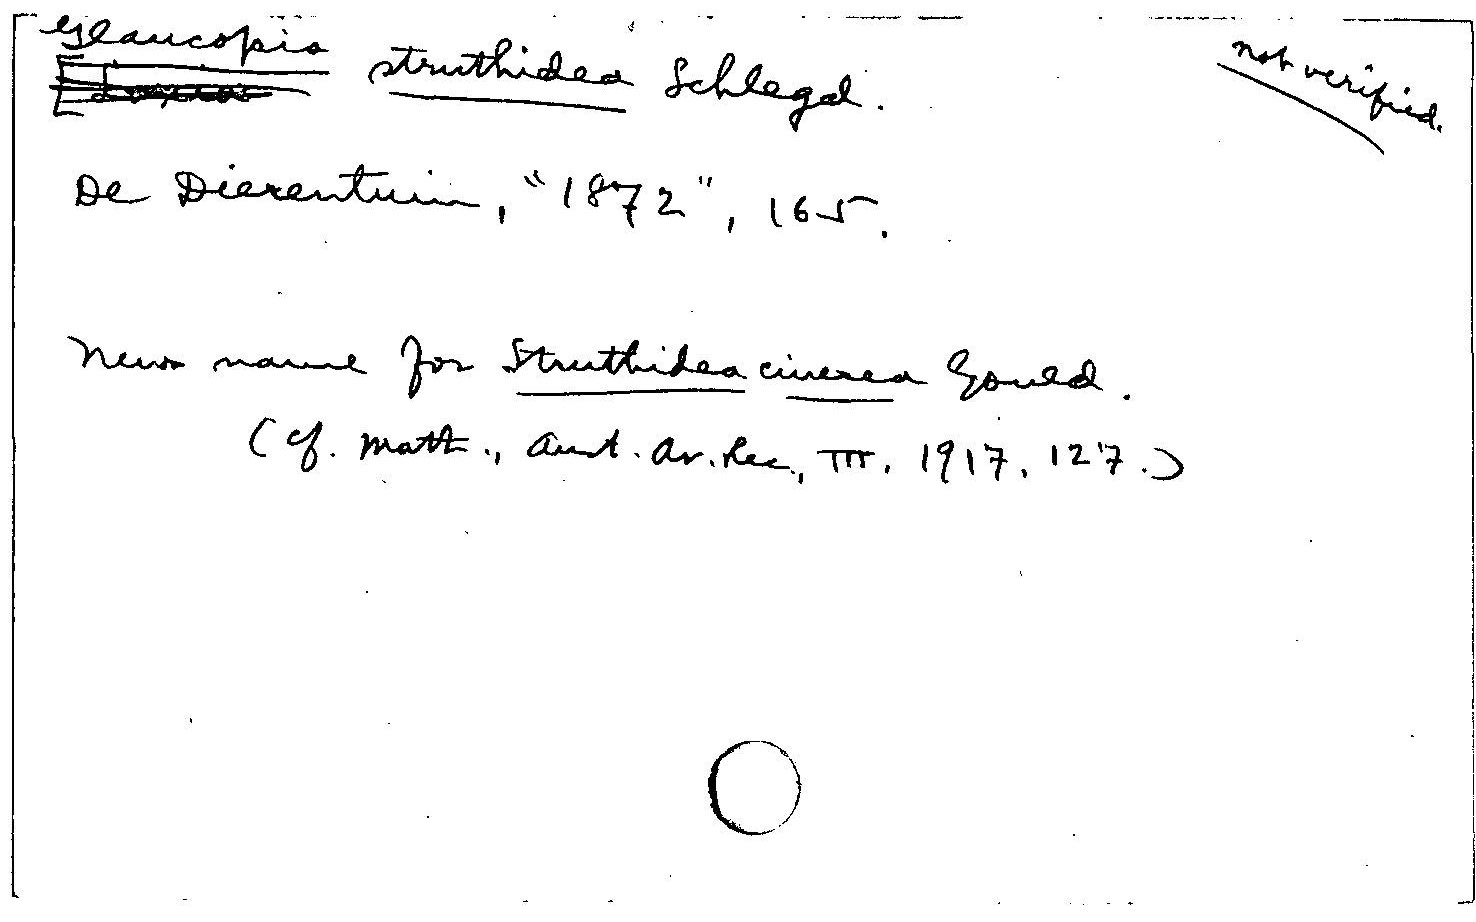 Glaucopis struthidea Schlegel.
not verified.
De Dierentuin, "1872", 165.
New name for Struthidea cinerea Gould.
(cf. Math., Aust. Av. Rec., III, 1917, 127.)